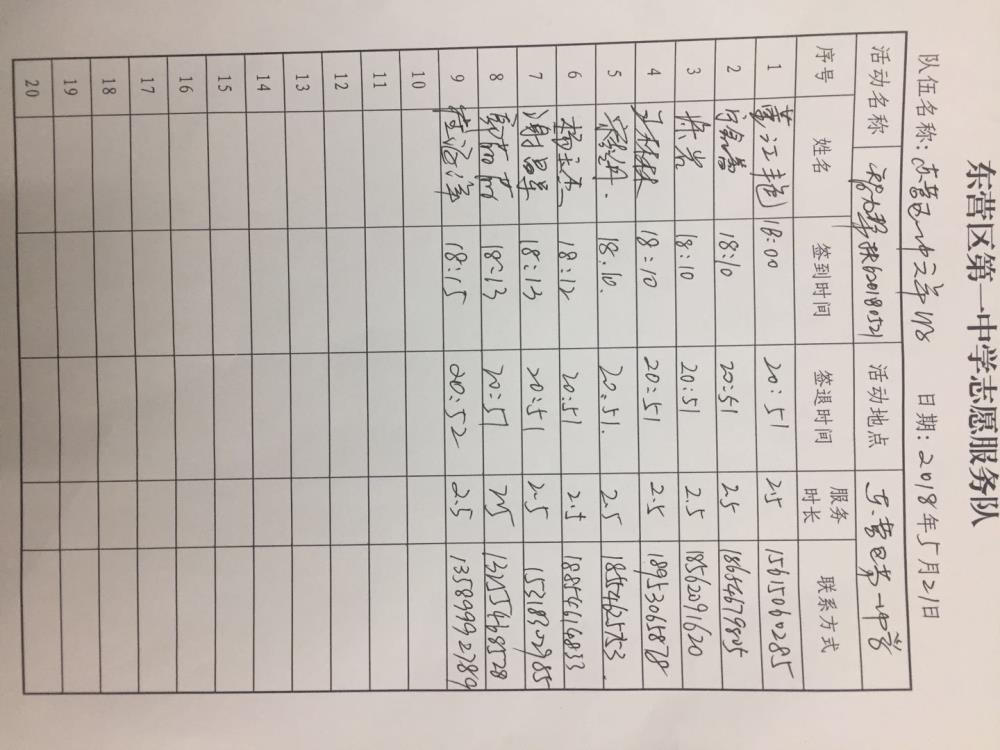 东营区第一中学志愿服务队
队伍名称: 东营区一中 日期: 2018年5月21日
活动名称 20180521 活动地点 东营区第一中学
序号 姓名 签到时间 签退时间 服务时长 联系方式
1 董江艳 18:00 20:51 2.5 15615060285
2 18:10 20:51 2.5 18654679805
3 18:10 20:51 2.5 18562091620
4 18:10 20:51 2.5 18953065878
5 18:10. 20:51. 2.5
6 杨立杰 18:12 20:51 2.5 18854616833
7 谢昌军 18:13 20:51 2.5 15318302985
8 18:13 20:51 2.5
9 18:15 20:52 2.5 13589992789
10
11
12
13
14
15
16
17
18
19
20